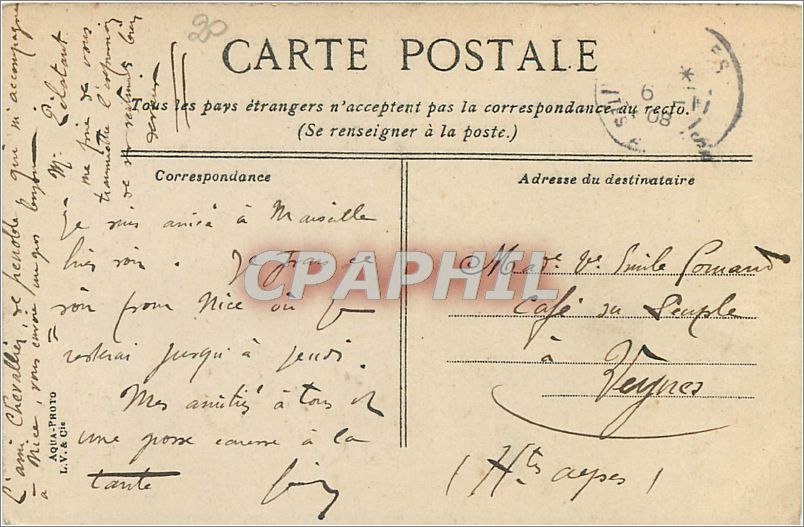 20
CARTE POSTALE
Tous les pays étrangers n'acceptent pas la correspondance au recto.
(Se renseigner à la poste.)
Correspondance
Je suis arrivé à Marseille
hier soir. Je pars ce
soir pour Nice où je
resterai jusqu'à jeudi.
Mes amitiés à tous et
une grosse caresse à la
tante
Mr. Délotant
me prie de vous
transmettre l'expression
de ses sentiments bien
L'ami Chevallier, de Grenoble qui m'accompagne
à Nice, vous envoie un gros bonjour
AQUA-PHOTO
L. V. & Cie
Adresse du destinataire
Made Ve Emile Comand
Café du Peuple
à
Veynes
(Htes alpes)
6
08
CPAPHIL